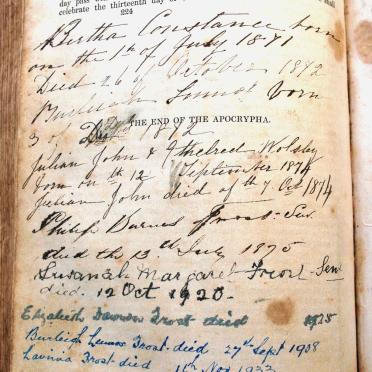 day pass
celebrate the thirteenth day of
224
Bertha Constance born
on the 1st of July 1871
Died 26 of October 1872
Burleigh Lennox born
3 of Dec 1872
THE END OF THE APOCRYPHA.
Julian John & Ethelred Wolsby
born on th 12 September 1874
Julian John died of th 7 Oct 1874
Philip Barnes Frost - Sen.
died the 13th July 1875
Susanah Margaret Frost - Sen
died. 12 Oct 1920.
Elizabeth Dawson Frost died 1925
Burleigh Lennox Frost - died 27th Sept 1938
Lavinia Frost - died 11th Nov 1933